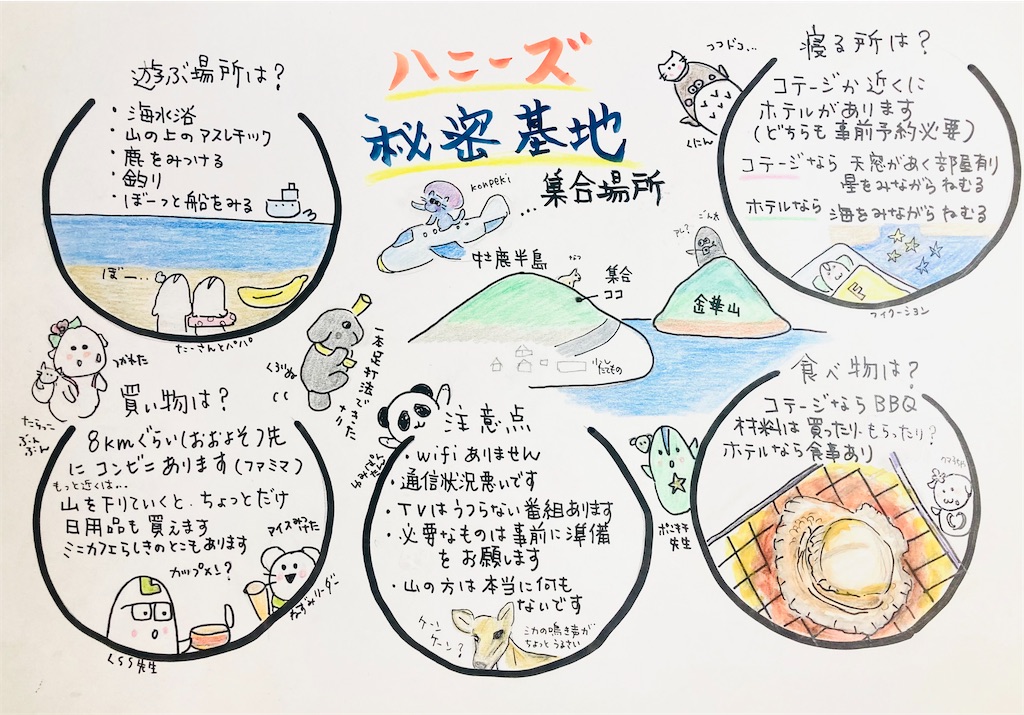 ハニーズ
秘密基地
…集合場所
konpeki
遊ぶ場所は?
・海水浴
・山の上のアスレチック
・鹿をみつける
・釣り
・ぼーっと船をみる
ぼー…
たーさんとパパ
寝る所は?
コテージか近くに
ホテルがあります
(どちらも事前予約必要)
コテージなら 天窓があく部屋有り
星をみながらねむる
ホテルなら 海をみながらねむる
フィクーション
ココドコ…
くたん
牡鹿半島
なつ
集合
ココ
金華山
アレ?
少し
たてもの
つかれた
たらっこ
ぶん
ぶん
買い物は?
8kmぐらい(おおよそ)先
に コンビニ あります(ファミマ)
もっと近くは…
山を下りていくと、ちょっとだけ
日用品も買えます
ミニカフェらしきのとこもあります
カップメン?
アイスみつけた
ねずみリーダー
くろぬ
一本足打法できった
注意点
・wifi ありません
・通信状況悪いです
・TVはうつらない番組あります
・必要なものは事前に準備
をお願します
・山の方は本当に何も
ないです
ケーン
ケーン?
シカの鳴き声が
ちょっとうるさい
食べ物は?
コテージならBBQ
材料は買ったり・もらったり?
ホテルなら食事あり
先生